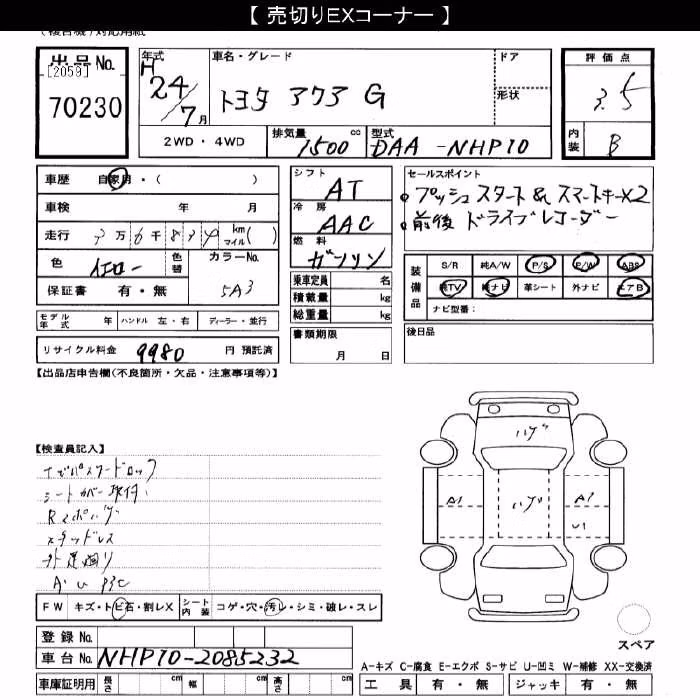 【 売切りEXコーナー 】
出品No.
[2059]
70230
年式 H 24/7月
車名・グレード トヨタ アクア G
ドア
形状
評価点 3.5
内装 B
2WD・4WD
排気量 1500 cc
型式 DAA-NHP10
車歴 自家用・( )
車検 年 月
走行 万 6千 8 km マイル( )
色 イエロー 色替
カラーNo. 5A3
保証書 有・無
モデル年式 年 ハンドル 左・右 ディーラー・並行
リサイクル料金 9980 円 預託済
シフト AT
冷房 AAC
燃料 ガソリン
乗車定員 名
積載量 kg
総重量 kg
書類期限
月 日
セールスポイント
プッシュスタート& スマートキー×2
前後 ドライブレコーダー
装備品
S/R 純A/W P/S P/W ABS
純TV 純ナビ 革シート 外ナビ エアB
ナビ型番:
後日品
【出品店申告欄(不良箇所・欠品・注意事項等)】
【検査員記入】
シートカバー取付
スタッドレス
外周廻り
A・U P3C
FW キズ・トビ石・割レX
シート内装 コゲ・穴・汚レ・シミ・破レ・スレ
登録No.
車台No. NHP10-2085232
車庫証明用 長さ cm 幅 cm 高さ cm
ハゲ
ハゲ
A1
A1
U1
スペア
A-キズ C-腐食 E-エクボ S-サビ U-凹ミ W-補修 XX-交換済
工具 有・無 ジャッキ 有・無